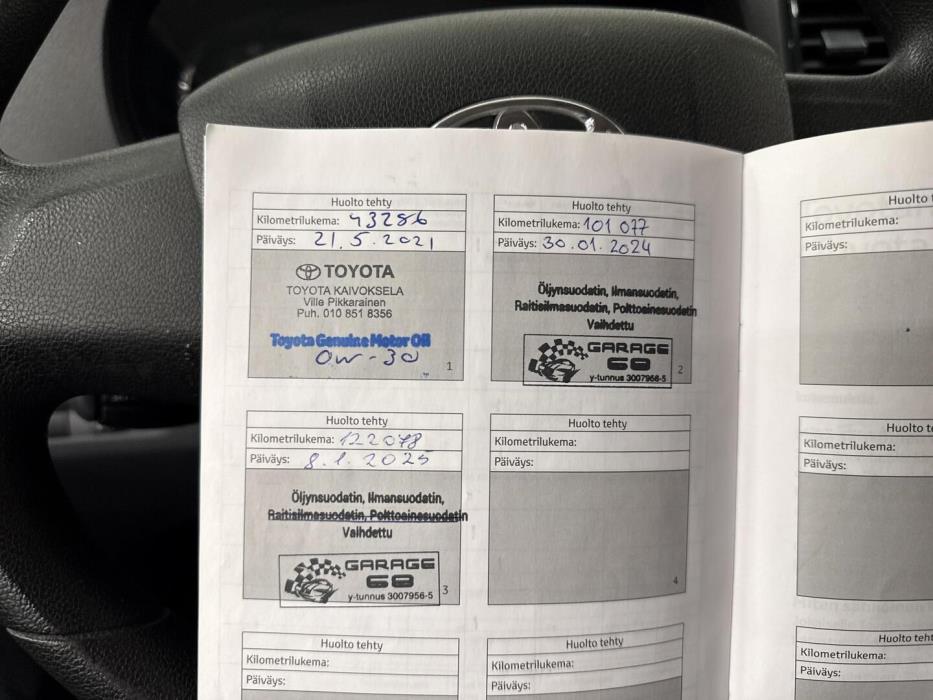 Huolto tehty
Kilometrilukema: 43286
Päiväys: 21.5.2021
TOYOTA
TOYOTA KAIVOKSELA
Ville Pikkarainen
Puh. 010 851 8356
Toyota Genuine Motor Oil
0w-30
1
Huolto tehty
Kilometrilukema: 101 077
Päiväys: 30.01.2024
Öljynsuodatin, Ilmansuodatin,
Raitisilmasuodatin, Polttoainesuodatin
Vaihdettu
GARAGE
GO
y-tunnus 3007956-5
2
Huolto tehty
Kilometrilukema: 122078
Päiväys: 8.1.2025
Öljynsuodatin, Ilmansuodatin,
Raitisilmasuodatin, Polttoainesuodatin
Vaihdettu
GARAGE
GO
y-tunnus 3007956-5
3
Huolto tehty
Kilometrilukema:
Päiväys:
4
Huolto tehty
Kilometrilukema:
Päiväys:
Huolto tehty
Kilometrilukema:
Päiväys:
Huolto
Kilometrilukema:
Päiväys:
Huolto te
Kilometrilukema:
Päiväys:
Huolto teht
Kilometrilukema:
Päiväys: